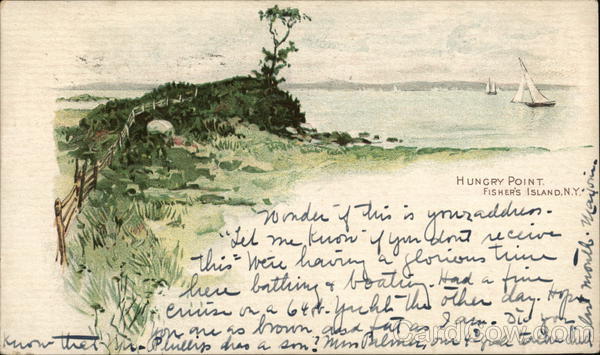 HUNGRY POINT.
FISHER'S ISLAND, N.Y.
Wonder if this is your address.
"Let me know if you don't receive
this" We're having a glorious time
here bathing & boating. Had a fine
cruise on a 64 ft. Yacht the other day. Hope
you are as brown and fat as I am. Did you
know that Mr. Phillips has a son? Miss Palmer, our
last month. Marjorie
CardCow.com